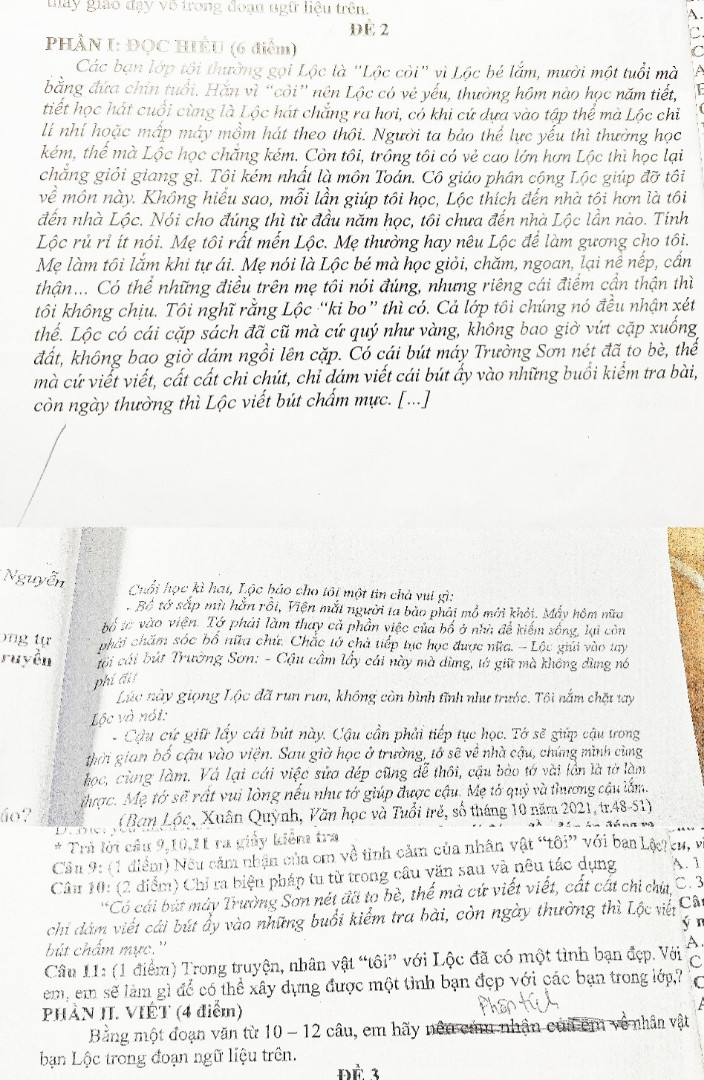 thầy giáo dạy vẽ trong đoạn ngữ liệu trên.
ĐỀ 2
PHẦN I: ĐỌC HIỂU (6 điểm)
Các bạn lớp tôi thường gọi Lộc là "Lộc còi" vì Lộc bé lắm, mười một tuổi mà
bằng đứa chín tuổi. Hẳn vì "còi" nên Lộc có vẻ yếu, thường hôm nào học năm tiết,
tiết học hát cuối cùng là Lộc hát chẳng ra hơi, có khi cứ dựa vào tập thể mà Lộc chỉ
lí nhí hoặc mấp máy mồm hát theo thôi. Người ta bảo thể lực yếu thì thường học
kém, thế mà Lộc học chẳng kém. Còn tôi, trông tôi có vẻ cao lớn hơn Lộc thì học lại
chẳng giỏi giang gì. Tôi kém nhất là môn Toán. Cô giáo phân công Lộc giúp đỡ tôi
về môn này. Không hiểu sao, mỗi lần giúp tôi học, Lộc thích đến nhà tôi hơn là tôi
đến nhà Lộc. Nói cho đúng thì từ đầu năm học, tôi chưa đến nhà Lộc lần nào. Tính
Lộc rủ rỉ ít nói. Mẹ tôi rất mến Lộc. Mẹ thường hay nêu Lộc để làm gương cho tôi.
Mẹ làm tôi lắm khi tự ái. Mẹ nói là Lộc bé mà học giỏi, chăm, ngoan, lại nề nếp, cẩn
thận... Có thể những điều trên mẹ tôi nói đúng, nhưng riêng cái điểm cẩn thận thì
tôi không chịu. Tôi nghĩ rằng Lộc "ki bo" thì có. Cả lớp tôi chúng nó đều nhận xét
thế. Lộc có cái cặp sách đã cũ mà cứ quý như vàng, không bao giờ vứt cặp xuống
đất, không bao giờ dám ngồi lên cặp. Có cái bút máy Trường Sơn nét đã to bè, thế
mà cứ viết viết, cất cất chi chút, chỉ dám viết cái bút ấy vào những buổi kiểm tra bài,
còn ngày thường thì Lộc viết bút chấm mực. [...]
Nguyễn
Cuối học kì hai, Lộc báo cho tôi một tin chả vui gì:
- Bố tớ sắp mù hẳn rồi, Viện mắt người ta bảo phải mổ mới khỏi. Mấy hôm nữa
bố tớ vào viện. Tớ phải làm thay cả phần việc của bố ở nhà để kiếm sống, lại còn
ong tự
phải chăm sóc bố nữa chứ. Chắc tớ chả tiếp tục học được nữa. – Lộc giúi vào tay
ruyền
tôi cái bút Trường Sơn: - Cậu cầm lấy cái này mà dùng, tớ giữ mà không dùng nó
phí đi!
Lúc này giọng Lộc đã run run, không còn bình tĩnh như trước. Tôi nắm chặt tay
Lộc và nói:
- Cậu cứ giữ lấy cái bút này. Cậu cần phải tiếp tục học. Tớ sẽ giúp cậu trong
thời gian bố cậu vào viện. Sau giờ học ở trường, tớ sẽ về nhà cậu, chúng mình cùng
học, cùng làm. Vả lại cái việc sửa dép cũng dễ thôi, cậu bảo tớ vài lần là tớ làm
được. Mẹ tớ sẽ rất vui lòng nếu như tớ giúp được cậu. Mẹ tớ quý và thương cậu lắm.
áo?
(Bạn Lộc, Xuân Quỳnh, Văn học và Tuổi trẻ, số tháng 10 năm 2021, tr.48-51)
* Trả lời câu 9,10,11 ra giấy kiểm tra
Câu 9: (1 điểm) Nêu cảm nhận của em về tình cảm của nhân vật "tôi" với bạn Lộc?
Câu 10: (2 điểm) Chỉ ra biện pháp tu từ trong câu văn sau và nêu tác dụng
"Có cái bút máy Trường Sơn nét đã to bè, thế mà cứ viết viết, cất cất chi chút,
chỉ dám viết cái bút ấy vào những buổi kiểm tra bài, còn ngày thường thì Lộc viết
bút chấm mực."
Câu 11: (1 điểm) Trong truyện, nhân vật "tôi" với Lộc đã có một tình bạn đẹp. Với
em, em sẽ làm gì để có thể xây dựng được một tình bạn đẹp với các bạn trong lớp,?
PHẦN II. VIẾT (4 điểm)
Phân tích
Bằng một đoạn văn từ 10 – 12 câu, em hãy nêu cảm nhận của em về nhân vật
bạn Lộc trong đoạn ngữ liệu trên.
ĐỀ 3